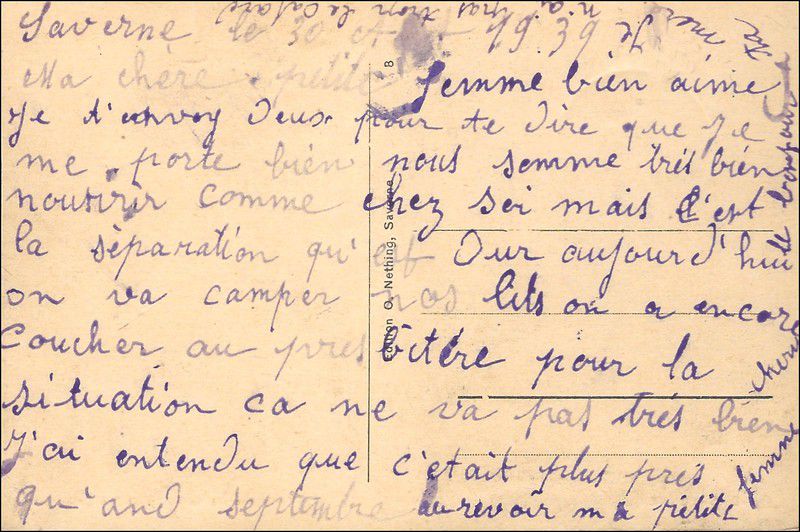 Saverne le 30 A 1939 Je
n'ai pas trop le cafard
Ma chère petite femme bien aimé
Je t'envoy deux pour te dire que je
me porte bien nous somme très bien
nourrir comme chez soi mais c'est
la séparation qu'est dur aujourd'hui
on va camper nos lits on a encore
coucher au presbitère pour la
situation ca ne va pas trés bien
J'ai entendu que c'était plus pres
qu'and septembre au revoir ma petite
femme chérie
bonjour a
ta mer
8
Edition O. Nething, Saverne